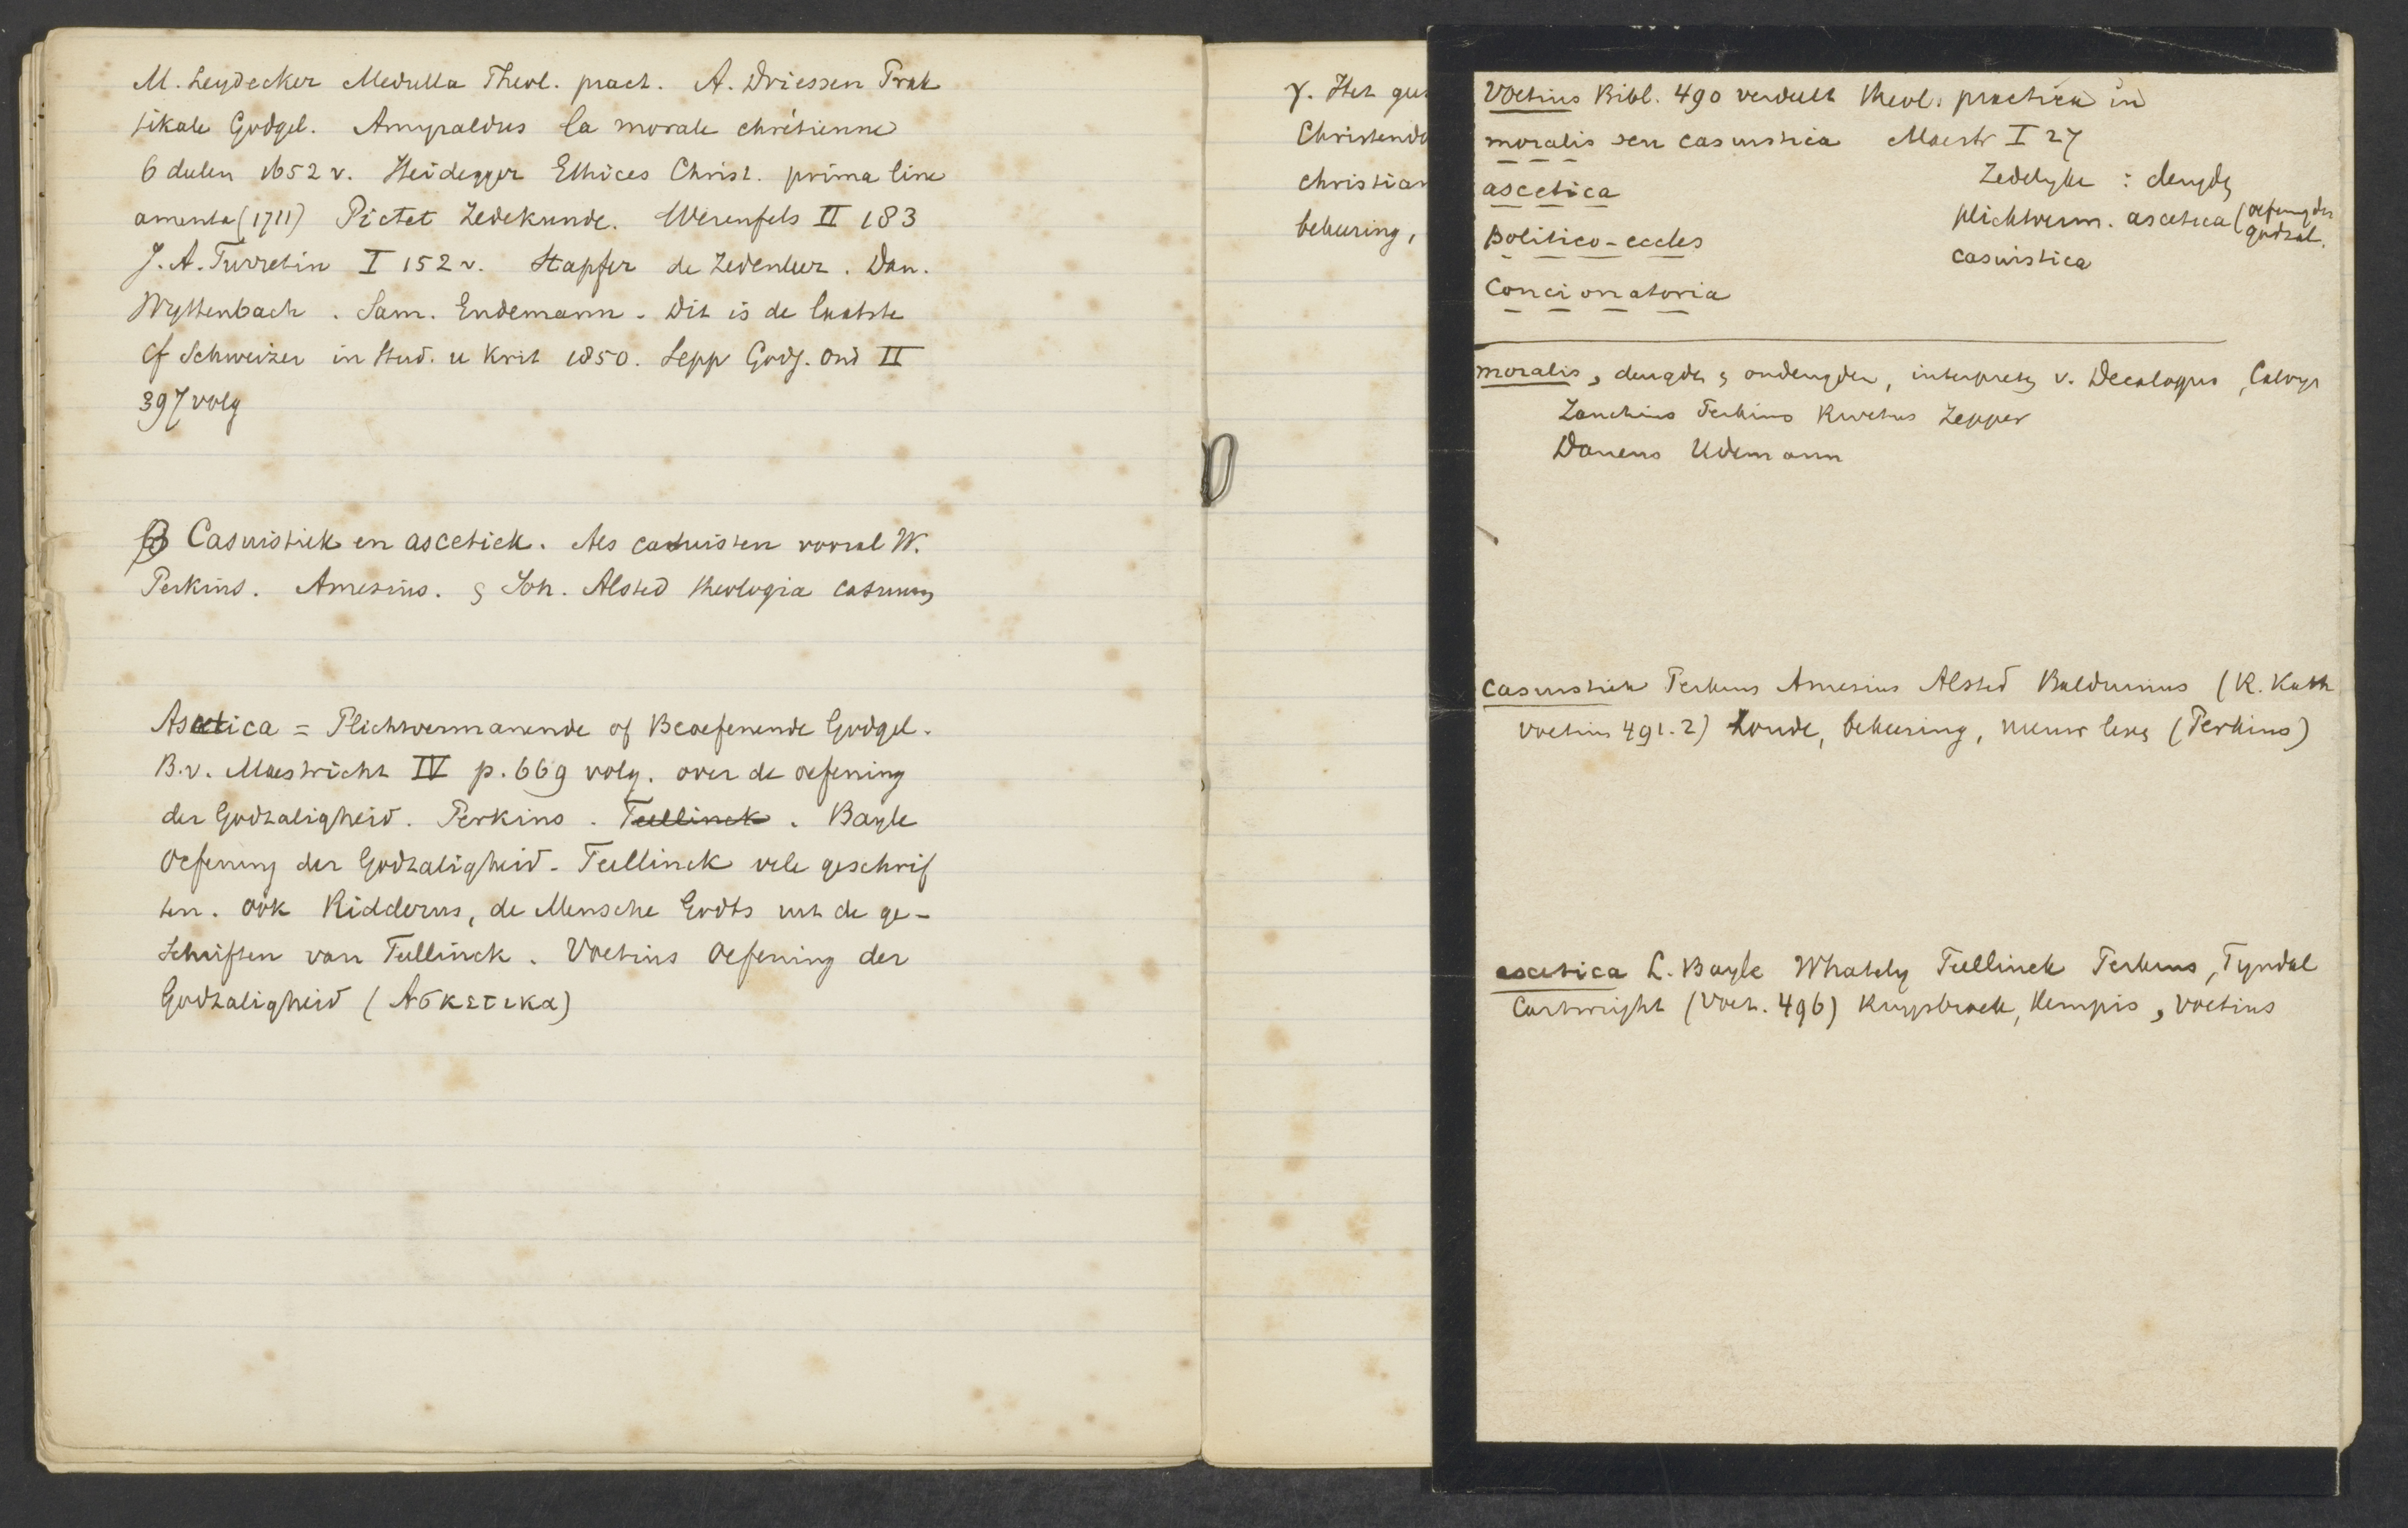 M. Leydecker Medulla Theol. pract. A. Driessen Prak
tikale Godgel. Amyraldus la morale chrétienne
6 deelen 1652 v. Heidegger Ethices Christ. prima line
amenta (1711) Pictet Zedekunde. Werenfels II 183
J. A. Turretin I 152 v. Stapfer de Zedenleer. Dan.
Wyttenbach. Sam. Endemann. Dit is de laatste
Cf Schweizer in Stud. u Krit 1850. Sepp Godg. Ond II
397 volg
β Casuistiek en ascetick. Als casuisten vooral W.
Perkins. Amesius. Joh. Alsted theologia casuum
Ascetica = Plichtvermanende of Beoefenende Godgel.
B. v. Maestricht IV p. 669 volg. over de oefening
der Godzaligheid. Perkins. Teellinck. Bayle
Oefening der Godzaligheid. Teellinck vele geschrif
ten. ook Ridderus, de Mensche Godts uit de ge-
schriften van Teellinck. Voetius Oefening der
Godzaligheid (Ασκετικα)
γ. Het
Christend
christian
bekeering,
Voetius Bibl. 490 verdeelt theol. practica in
moralis seu casuistica Maestr I 27
ascetica Zedelyke : deugden
politico-eccles plichtverm. ascetica (oefeng der godzal.
concionatoria casuistica
moralis, deugden & ondeugden, interpretes v. Decalogus, Calvyn
Zanchius Perkins Rivetus Zepper
Daneus Udemann
casuistiek Perkins Amesius Alsted Balduinus (R. Kath
Voetius 491.2) Zonde, bekeering, nieuw leven (Perkins)
ascetica L. Bayle Whately Teellinck Perkins, Tyndal
Cartwright (Voet. 496) Ruysbroek, Kempis, Voetius